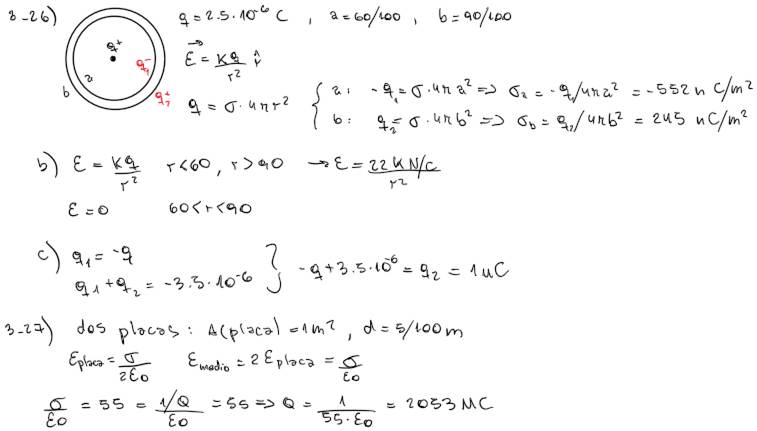 3-26) q = 2.5·10⁻⁶ C , a = 60/100 , b = 90/100
q⁺ q₁⁻ a b q₂⁺
E⃗ = Kq/r² r̂
q = σ·4πr²
{ a: -q₁ = σ·4πa² => σₐ = -q₁/4πa² = -552 n C/m²
b: q₂ = σ·4πb² => σ_b = q₂/4πb² = 245 nC/m²
b) E = Kq/r² r<60, r>90 → E = 22KN/C/r²
E = 0 60<r<90
c) q₁ = -q
q₁ + q₂ = -3.5·10⁻⁶ } -q + 3.5·10⁻⁶ = q₂ = 1uC
3-27) dos placas: A(placa) = 1m² , d = 5/100 m
Eplaca = σ/2ε₀ Emedio = 2Eplaca = σ/ε₀
σ/ε₀ = 55 = 1/Q/ε₀ = 55 => Q = 1/55·ε₀ = 2053 MC